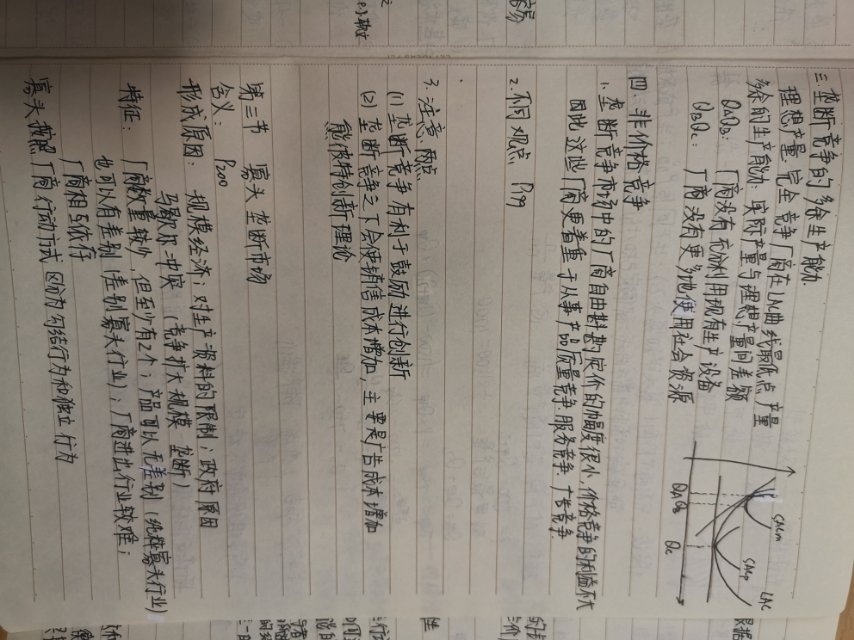 三.垄断竞争的多余生产能力
理想产量:完全竞争厂商在LAC曲线最低点产量
多余的生产能力:实际产量与理想产量间差额
QAQB: 厂商没有充分利用现有生产设备
QBQC: 厂商没有更多地使用社会资源
QA QB QC
SACm
SACp
LAC
四.非价格竞争
1.垄断竞争市场中的厂商自由斟酌定价的幅度很小,价格竞争的利益不大
因此这些厂商更着重于从事产品质量竞争.服务竞争.广告竞争.
2.不同观点 P199
3.注意两点
(1)垄断竞争有利于鼓励进行创新
(2)垄断竞争之下会使销售成本增加,主要是广告成本增加
熊彼特创新理论
第三节 寡头垄断市场
含义: P200
形成原因: 规模经济;对生产资料的限制;政府原因
马歇尔冲突(竞争扩大规模 垄断)
特征: 厂商数量较少,但至少有2个;产品可以无差别(纯粹寡头行业)
也可以有差别(差别寡头行业);厂商进出行业较难;
厂商相互依存
寡头按照厂商行动方式 区分为勾结行为和独立行为